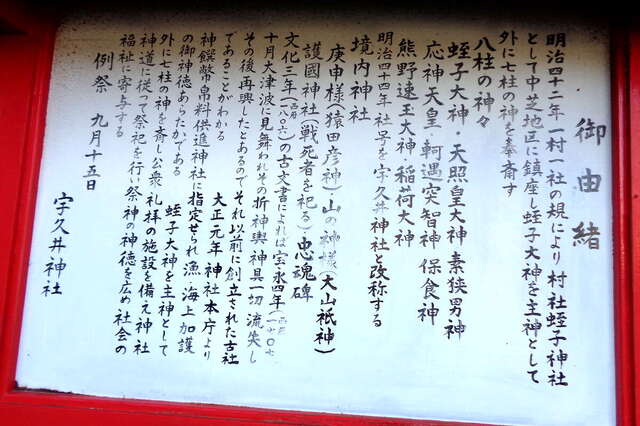 御由緒
明治四十二年一村一社の規により村社蛭子神社
として中芝地区に鎮座し蛭子大神を主神として
外に七柱の神を奉斎す
八柱の神々
蛭子大神・天照皇大神 素狭男神
応神天皇・軻遇突智神 保食神
熊野速玉大神・稲荷大神
明治四十四年 社号を宇久井神社と改称する
境内神社
庚申様(猿田彦神)山の神様(大山祇神)
護國神社(戦死者を祀る)忠魂碑
文化三年(一八〇六)の古文書によれば宝永四年(一七〇七)
十月大津波に見舞われその折神輿神具一切流失し
その後再興したとあるのでそれ以前に創立された古社
であることがわかる 大正元年神社本庁より
神饌幣帛料供進神社に指定せられ漁海上加護
の御神徳あらたかである 蛭子大神を主神として
外七柱の神を斎し公衆礼拝の施設を備え神社
神道に従って祭祀を行い祭神の神徳を広め社会の
福祉に寄与する
例祭 九月十五日
宇久井神社